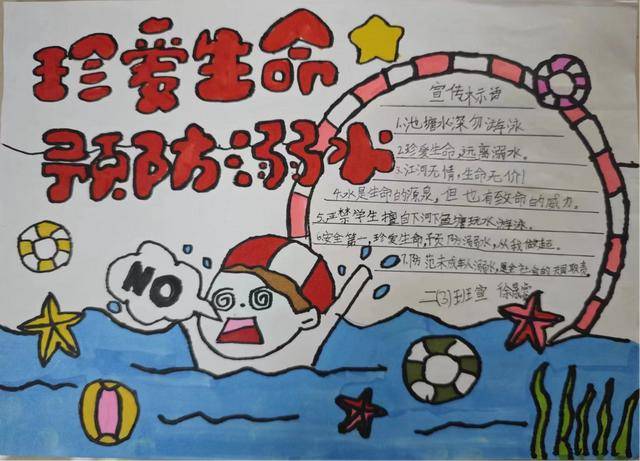 珍爱生命
预防溺水
NO
宣传标语
1.池塘水深勿游泳
2.珍爱生命,远离溺水。
3.江河无情,生命无价!
4.水是生命的源泉,但也有致命的威力。
5.严禁学生擅自下河下鱼塘玩水游泳。
6.安全第一,珍爱生命预防溺水,从我做起。
7.防范未成年人溺水,是全社会的共同
二(3)班